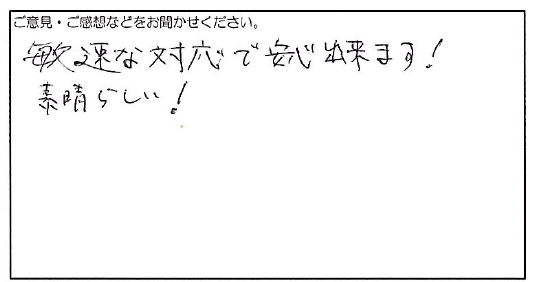 ご意見・ご感想などをお聞かせください。
敏速な対応で安心出来ます!
素晴らしい!